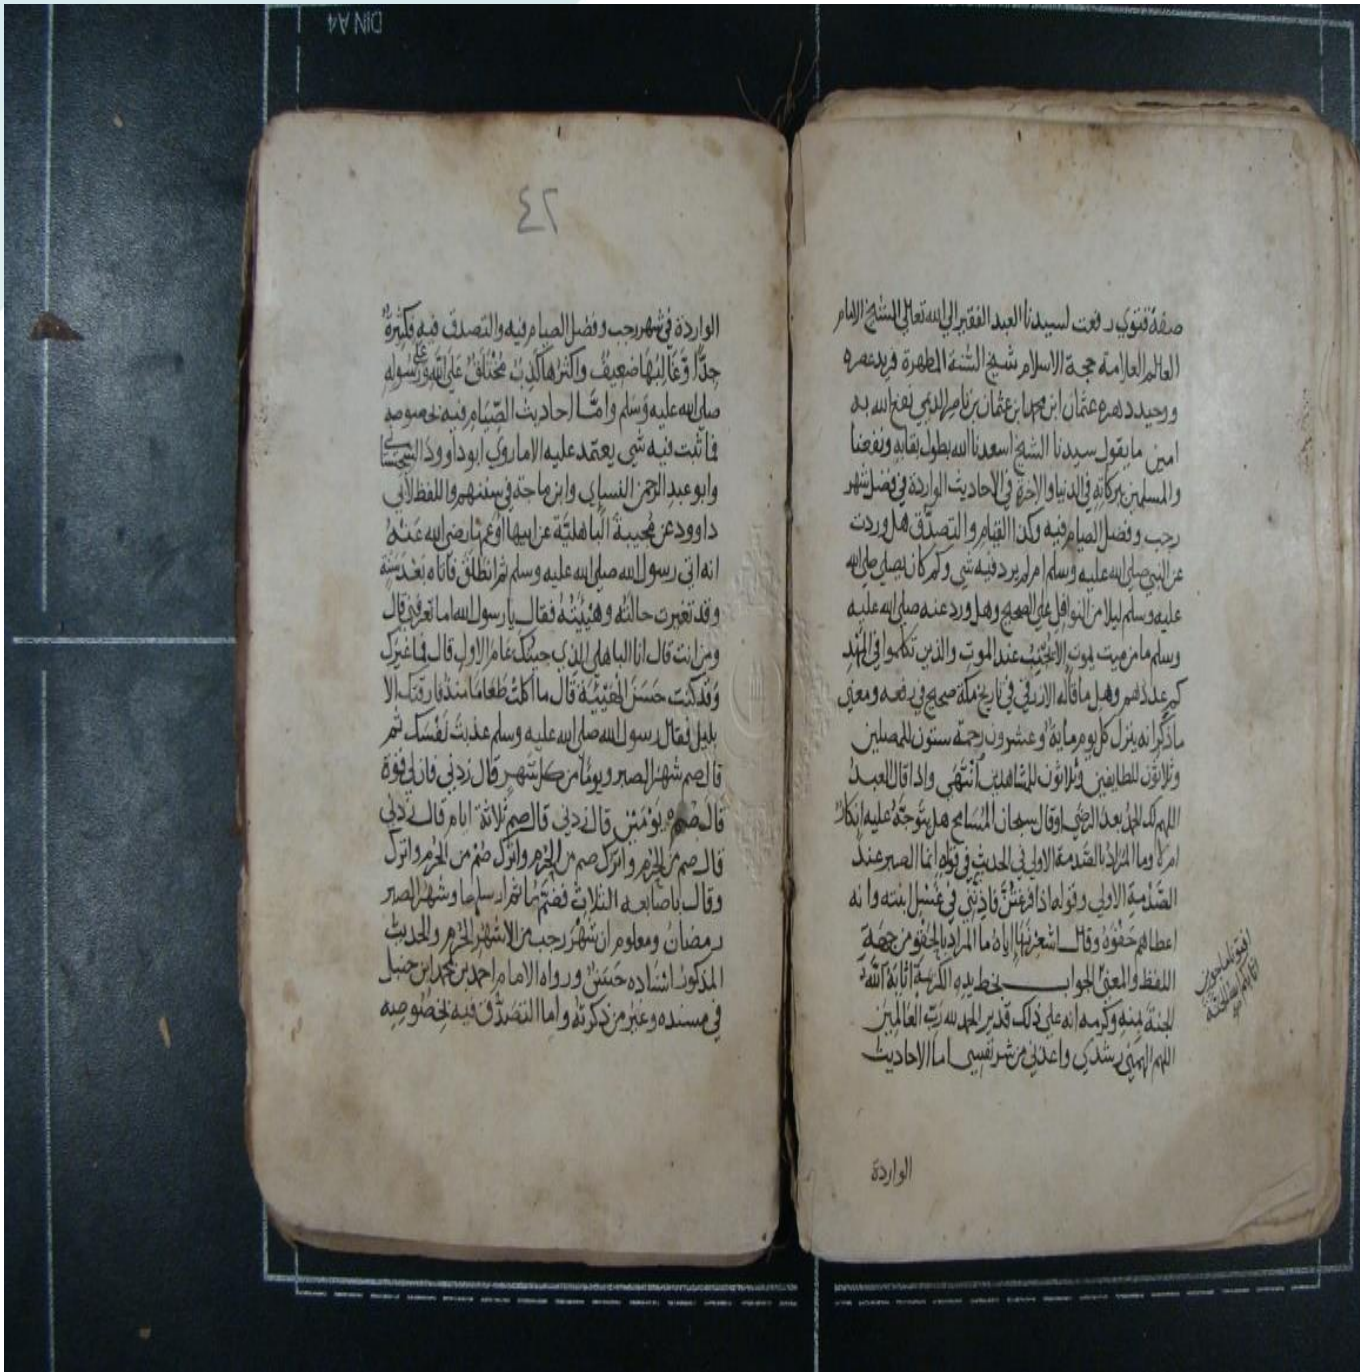 صفة فتوي رفعت لسيدنا العبد الفقير الي الله تعالي الشيخ الامام
العالم العلامة حجة الاسلام شيخ السُّنة المطهرة فريد عصره
ووحيد دهره عثمان ابن محمد ابن عثمان بن ناصر الديمي نفع الله به
امين ما يقول سيدنا الشيخ اسعدنا الله بطول بقايه ونفعنا
والمسلمين ببركاته في الدنيا والاخرة في الاحاديث الواردة في فضل شهر
رجب وفضل الصيام فيه وكذا القيام والتصدّق هل وردت
عن النبي صلي الله عليه وسلم ام لم يرد فيه شي وكم كان يصلي صلي الله
عليه وسلم ليلا من النوافل علي الصحيح وهل ورد عنه صلي الله عليه
وسلم ما من ميت يموت الا يجنب عند الموت والذين تكلموا في المهد
كم عددهم وهل ما قاله الازرقي في تاريخ مكة صحيح في رفعه ومعني
ما ذكر انه ينزل كل يوم ماية وعشرون رحمة ستون للمصلين
وثلاثون للطايفين وثلاثون للمشاهدين انتهي واذا قال العبد
اللهم لك الحمد بعد الرضي او قال سبحان المسامح هل يتوجّه عليه انكار
ام لا وما المراد بالصَّدمة الاولي في الحديث في قوله انما الصبر عند
الصَّدمة الاولي وقوله اذا فرغتنَّ فاذنَّني في غسل ابنته وانه
اعطاهم حَقْوَه وقال اشعرنها اياه ما المراد بالحقو من جهة
اللفظ والمعني الجواب بخط يده الكريمة اثابه الله
الجنة بمنه وكرمه انه علي ذلك قدير الحمد لله ربّ العالمين
اللهم الهمني رشدي واعذني من شر نفسي اما الاحاديث
الواردة
افتونا ماجورين
اثابكم الله الجنة
٢٤
الواردة في شهر رجب وفضل الصيام فيه والتصدق فيه فكثيرة
جدًّا وغالبها ضعيف واكثرها كذب مختلق علي الله وعلي رسوله
صلي الله عليه وسلم وامّا احاديث الصّيام فيه لخصوصه
فما ثبت فيه شي يعتمد عليه الا ما روي ابو داوود السجستاني
وابو عبد الرحمن النسياي وابن ماجة في سننهم واللفظ لابي
داوود عن مجيبة الباهلية عن ابيها او عمها رضي الله عنه
انه اتي رسول الله صلي الله عليه وسلم ثم انطلق فاتاه بعد سنة
وقد تغيرت حالته وهيئته فقال يا رسول الله اما تعرفني قال
ومن انت قال انا الباهلي الذي جيتك عام الاول قال فما غيرك
وقد كنت حسن الهيية قال ما اكلت طعاما منذ فارقتك الا
بليل فقال رسول الله صلي الله عليه وسلم عذبت نفسك ثم
قال صم شهر الصبر ويوما من كل شهر قال زدني فان لي قوة
قال صم يومين قال زدني قال صم ثلاثة ايام قال زدني
قال صم من الحرم واترك صم من الحرم واترك صم من الحرم واترك
وقال باصابعه الثلاث فضمّها ثم ارسلها وشهر الصبر
رمضان ومعلوم ان شهر رجب من الاشهر الحرم والحديث
المذكور اسناده حسن ورواه الامام احمد بن محمد ابن حنبل
في مسنده وغير من ذكرته واما التصدّق فيه لخصوصه